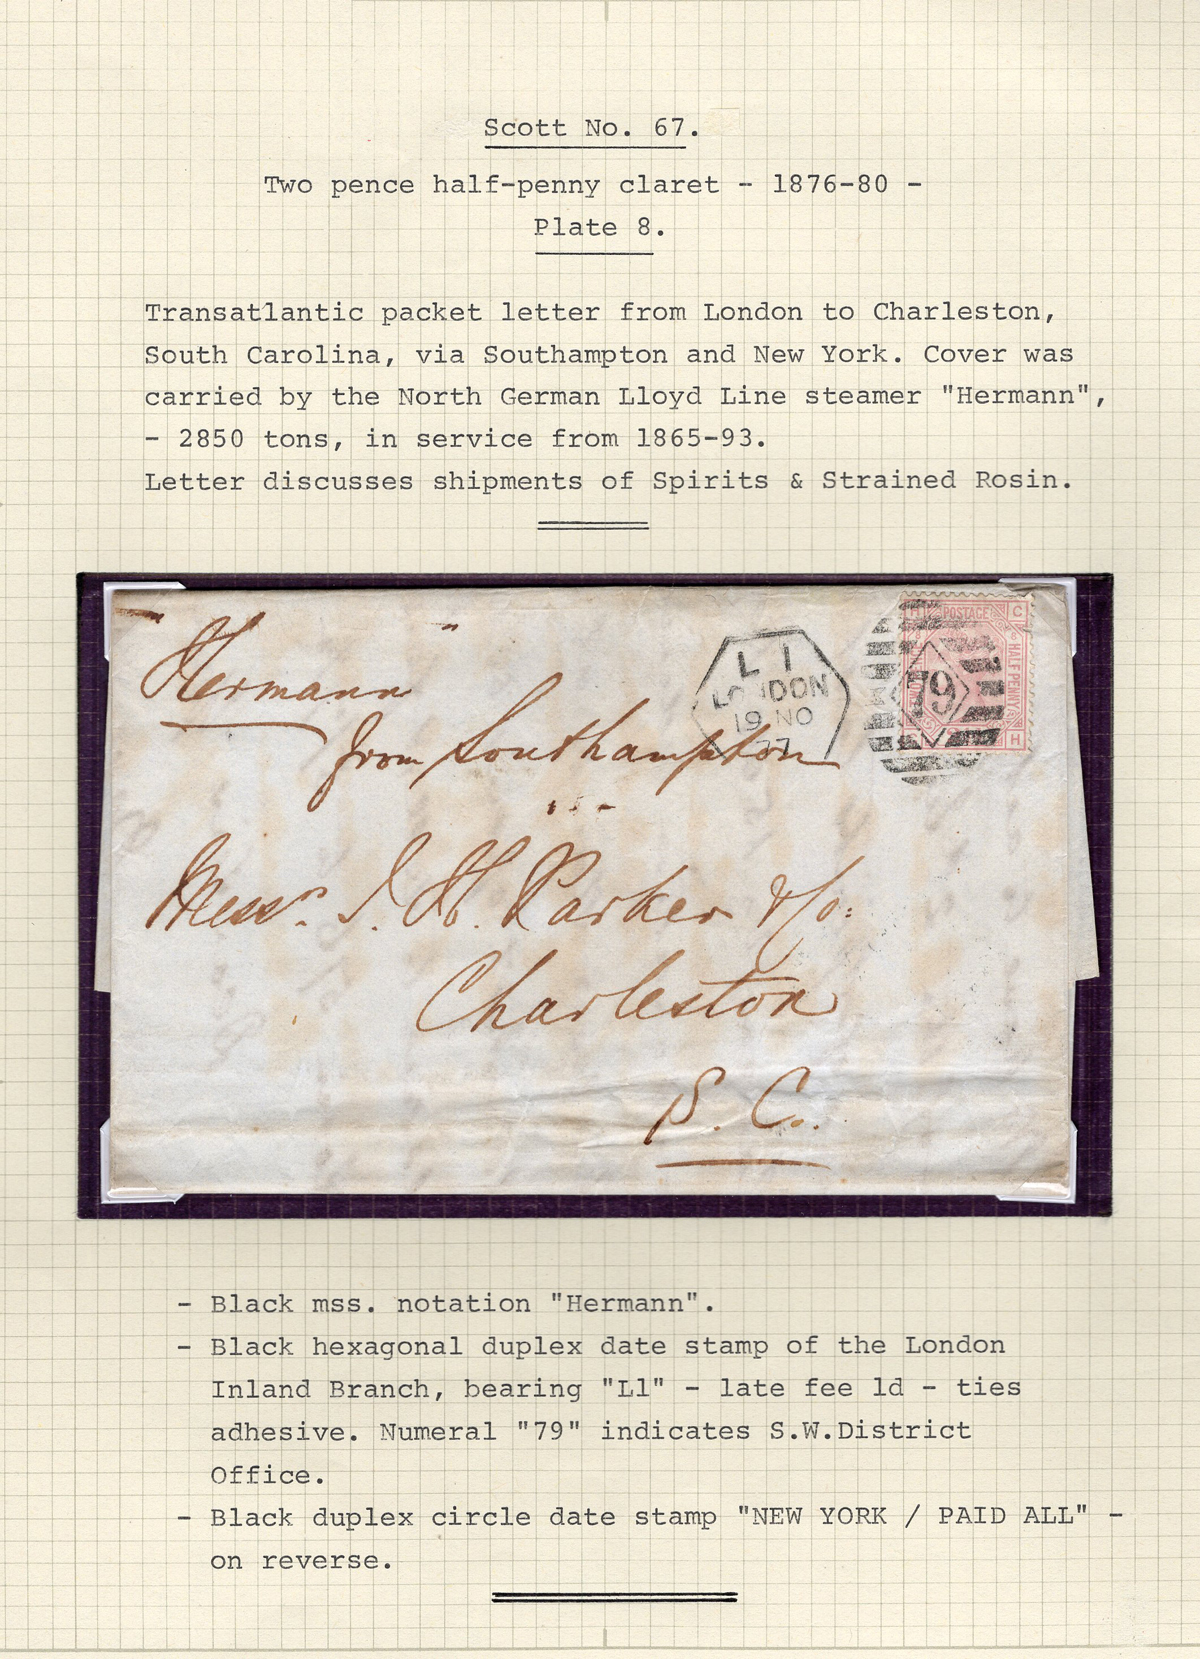 Scott No. 67.
Two pence half-penny claret - 1876-80 -
Plate 8.
Transatlantic packet letter from London to Charleston,
South Carolina, via Southampton and New York. Cover was
carried by the North German Lloyd Line steamer "Hermann",
- 2850 tons, in service from 1865-93.
Letter discusses shipments of Spirits & Strained Rosin.
Hermann
from Southampton
L 1
LONDON
19 NO
77
H POSTAGE C
HALF PENNY
79
H
Messrs. J. H. Parker & Co:
Charleston
S. C.
- Black mss. notation "Hermann".
- Black hexagonal duplex date stamp of the London
Inland Branch, bearing "L1" - late fee 1d - ties
adhesive. Numeral "79" indicates S.W.District
Office.
- Black duplex circle date stamp "NEW YORK / PAID ALL" -
on reverse.